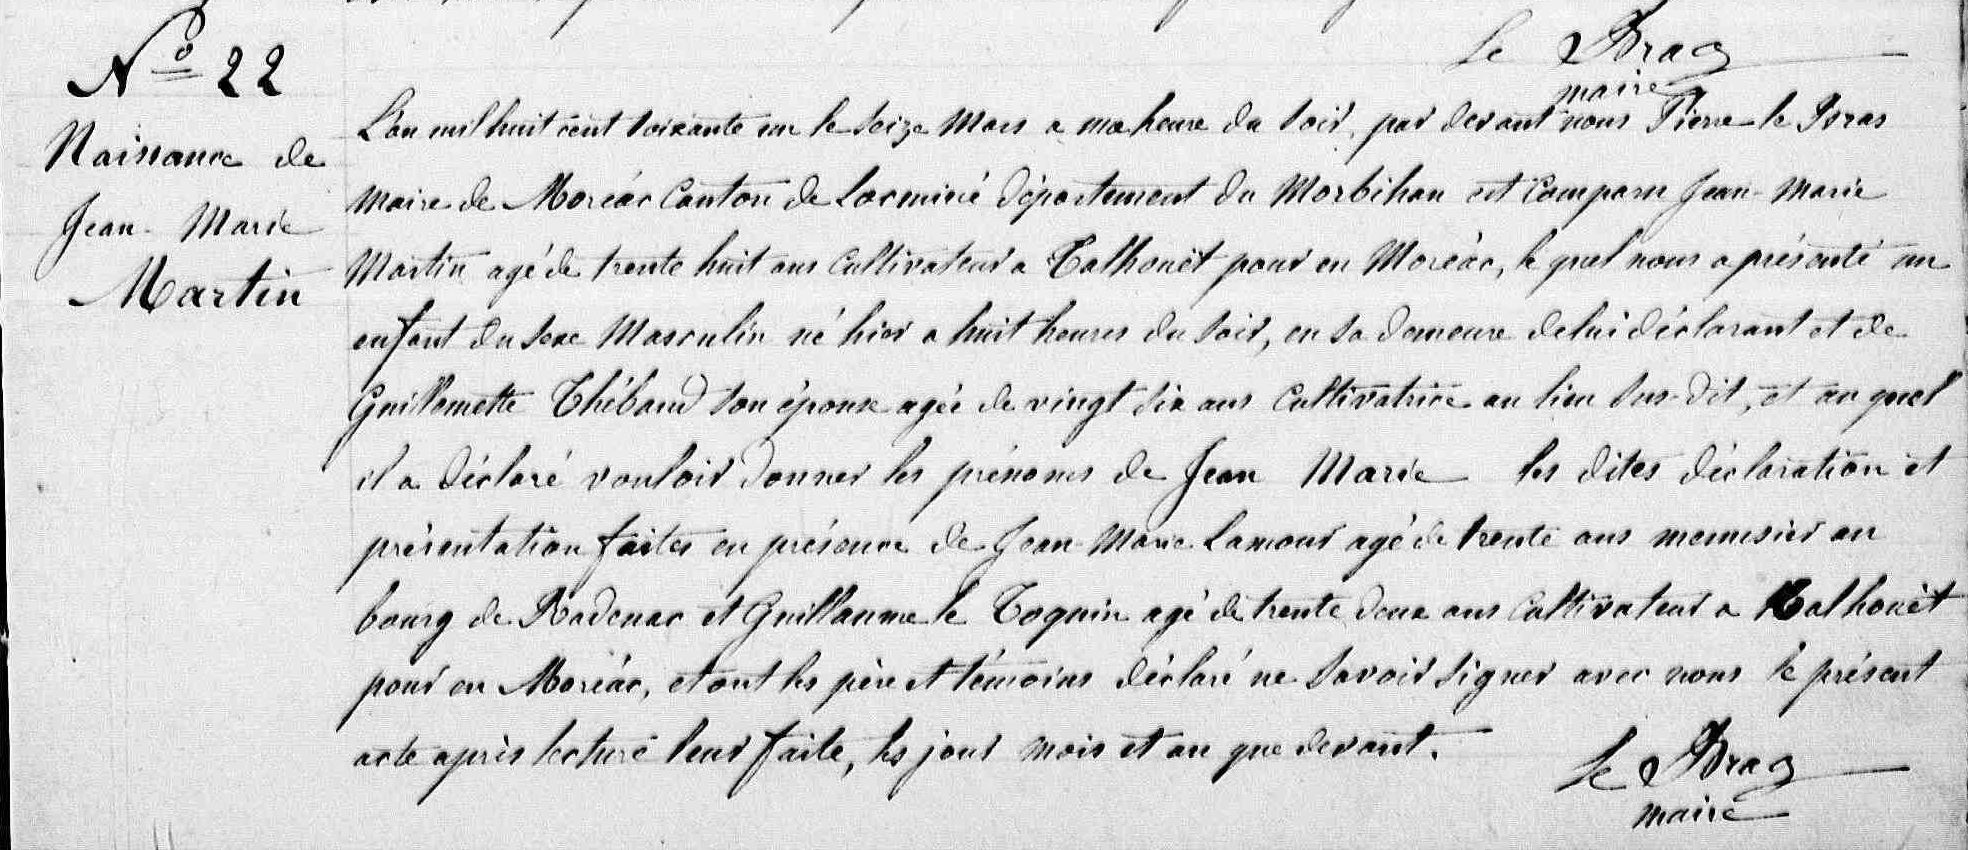 Le Braz
maire
N° 22
Naissance de
Jean-Marie
Martin
L'an mil huit cent soixante un le seize Mars a une heure du soir, par devant nous Pierre le Bras
maire de Moréac Canton de Locminé département du Morbihan est Comparu Jean-Marie
Martin agé de trente huit ans Cultivateur a Talhouët pour en Moréac, le quel nous a présenté un
enfant du sexe Masculin né hier a huit heures du soir, en sa demeure de lui déclarant et de
Guillemette Thébaud son épouse agée de vingt six ans Cultivatrice au lieu sus-dit, et au quel
il a déclaré vouloir donner les prénoms de Jean Marie les dites déclaration et
présentation faites en présence de Jean Marie Lamour agé de trente ans menuisier au
bourg de Radenac et Guillaume le Toquin agé de trente deux ans Cultivateur a Talhouët
pour en Moréac, et ont les père et témoins déclaré ne savoir signer avec nous le présent
acte après lecture leur faite, les jour mois et an que devant.
Le Braz
maire